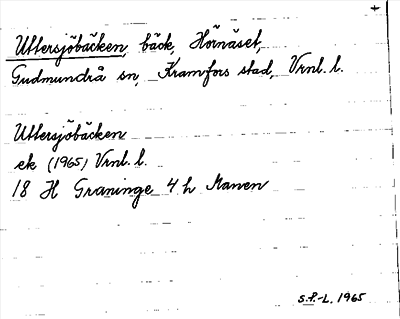 Uttersjöbäcken, bäck, Hörnäset,
Gudmundrå sn, Kramfors stad, Vrnl. l.
Uttersjöbäcken
ek (1965) Vrnl. l.
18 H Graninge 4 h Manen
S.P.-L. 1965